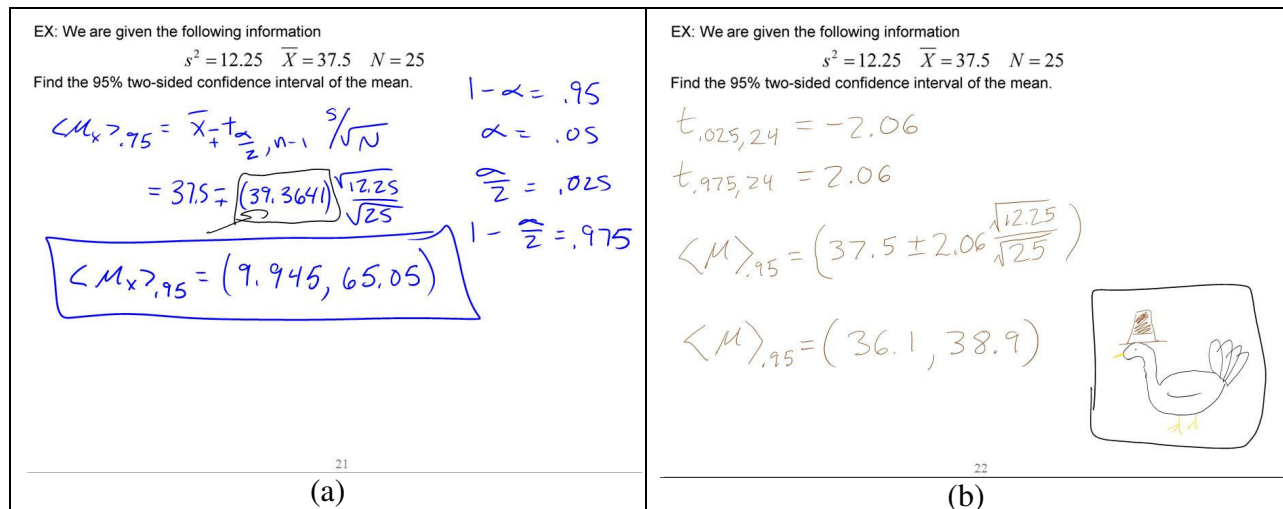 EX: We are given the following information
s² = 12.25 X̄ = 37.5 N = 25
Find the 95% two-sided confidence interval of the mean.
<μₓ>.95 = x̄ ∓ t α/2, n-1 s/√N
= 37.5 ∓ (39.3641) √12.25/√25
<μₓ>.95 = (9.945, 65.05)
1-α = .95
α = .05
α/2 = .025
1 - α/2 = .975
21
(a)
EX: We are given the following information
s² = 12.25 X̄ = 37.5 N = 25
Find the 95% two-sided confidence interval of the mean.
t.025,24 = -2.06
t.975,24 = 2.06
<μ>.95 = (37.5 ± 2.06 √12.25/√25)
<μ>.95 = (36.1, 38.9)
22
(b)